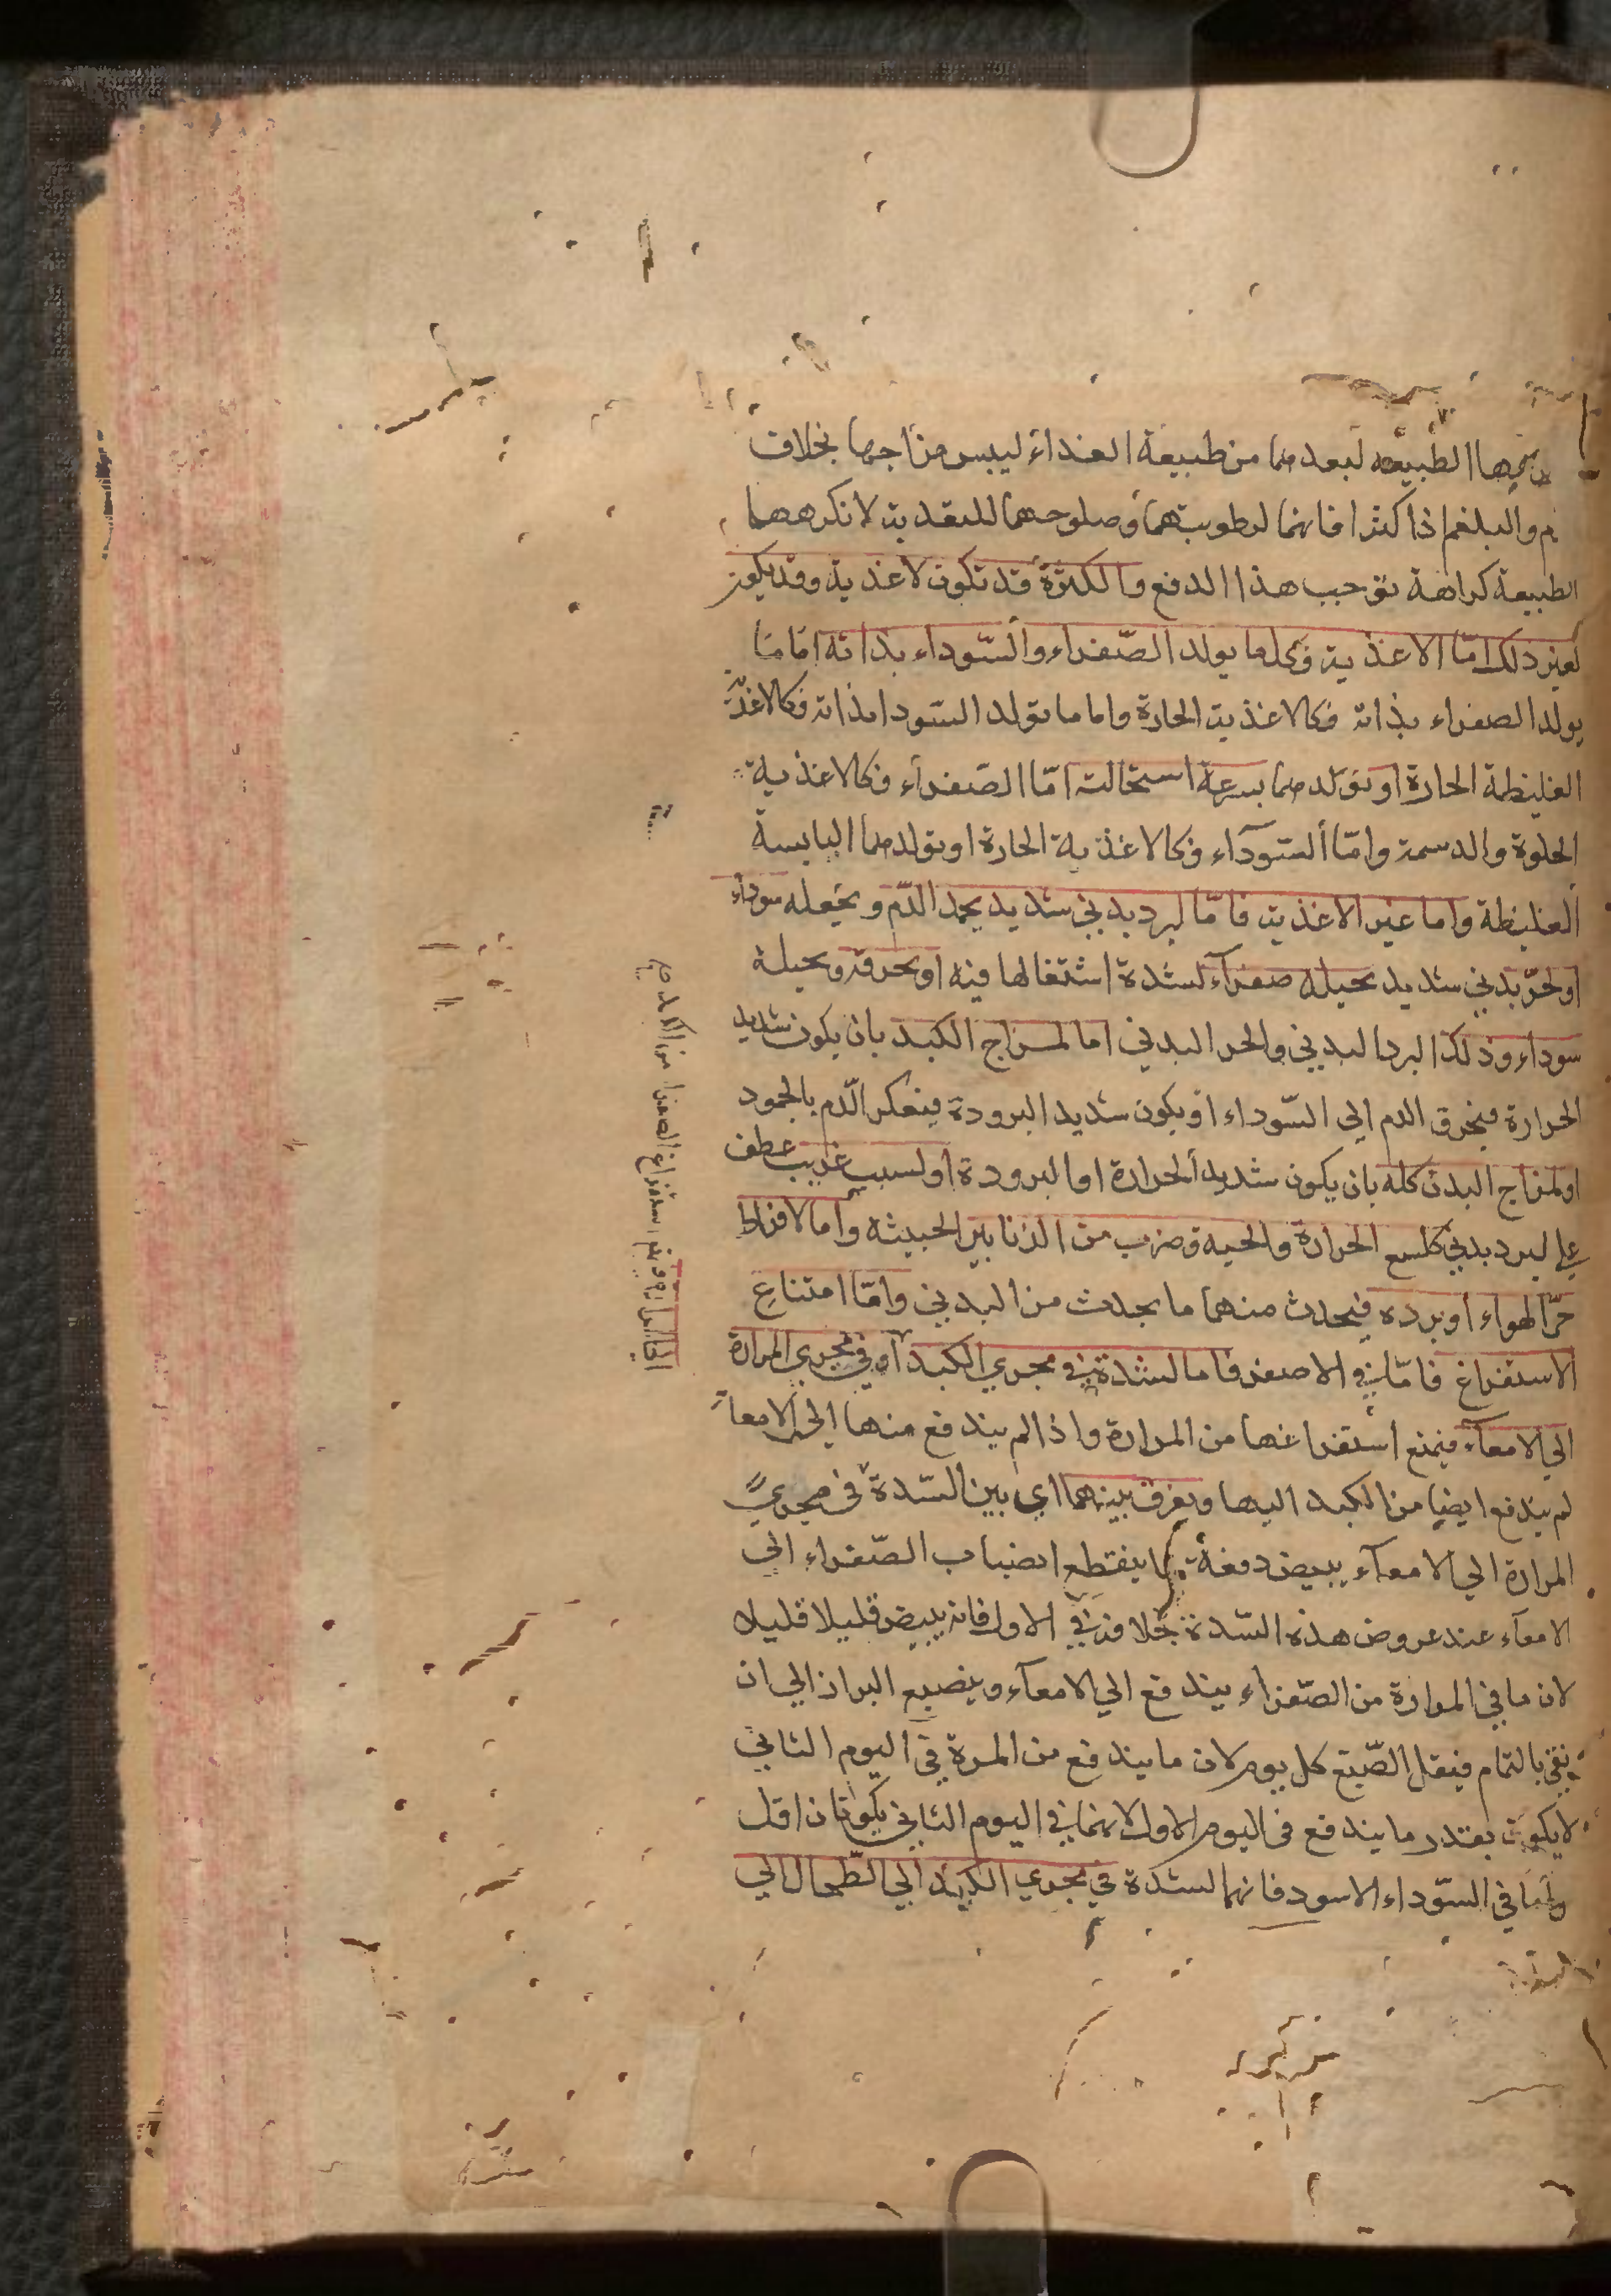 الطبيعه لبعدهما من طبيعة الغذاء ليبس مزاجها بخلاف
م والبلغم اذا كثرا فانهما لرطوبتهما وصلوحهما للتغدية لا تكرههما
الطبيعة كراهة توجب هذا الدفع والكثرة قد تكون لاغذية وقد يكون
لغير ذلك امّا الاغذية فكلما يولد الصّفراء والسّوداء بذاته امّا ما
يولد الصفراء بذاته فكالاغذية الحارة واما ما يولد السّودا بذاته فكالاغذية
الغليظة الحارة او يتولد منها بسرعة استحالته امّا الصّفرآء فكالاغذية
الحلوة والدسمة وامّا السّودآء فكالاغذية الحارة او يتولد منها اليابسة
الغليظة واما غير الاغذية فامّا لبرد بدني شديد يجمد الدّم ويجعله سوداء
او لحرّ بدني شديد يحيله صفرآء لشدة اشتغالها فيه او يحرقه ويحيله
سوداء وذلك البرد البدني والحر البدني اما لمزاج الكبد بان يكون شديد
الحرارة فيحرق الدم الي السّوداء او يكون شديد البرودة فيعكر الدّم بالجمود
او لمزاج البدن كله بان يكون شديد الحرارة او البرودة او لسبب غريب عطف
علي لبرد بدني كلسع الجرارة والحيه وضرب من الزنابير الخبيثه واما لافراط
حرّ الهواء او برده فيحدث منهما ما يحدث من البدني وامّا امتناع
الاستفراغ فامّا في الاصفر فاما لسدة في مجري الكبد او في مجري المرارة
الي الامعآء فيمنع استفراغها من المرارة واذا لم يندفع منها الي الامعآء
لم يندفع ايضا من الكبد اليها ويفرق بينهما اي بين السّدة في مجري
المرارة الي الامعآء يبيض دفعة انصباب الصّفراء الي
الامعآء عند عروض هذه السّدة بخلافه في الاول فانه يبيض قليلا قليلا
لان ما في المرارة من الصّفراء يندفع الي الامعآء ويصبغ البراز الي ان
ينقي بالتمام فيقل الصّبغ كل يوم لان ما يندفع من المرة في اليوم الثاني
لا يكون بقدر ما يندفع في اليوم الاول لانها في اليوم الثاني اقل
واما في السّوداء الاسود فانها لسدة في مجري الكبد الي الطّحال الي